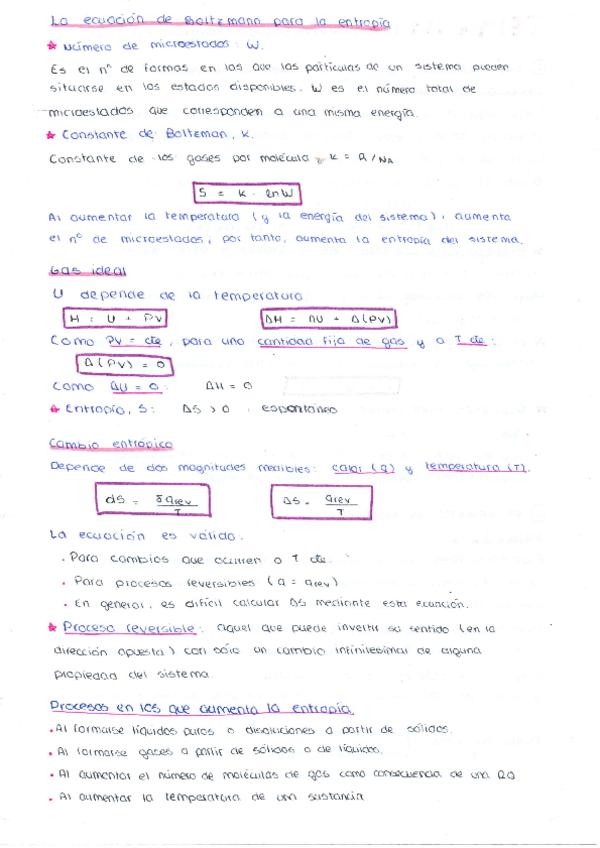 La ecuación de Boltzmann para la entropía
★ Número de microestados: W.
Es el nº de formas en las que las partículas de un sistema pueden
situarse en los estados disponibles. W es el número total de
microestados que corresponden a una misma energía.
★ Constante de Boltzman, K.
Constante de los gases por molécula, K = R/NA
S = K · lnW
Al aumentar la temperatura (y la energía del sistema), aumenta
el nº de microestados, por tanto, aumenta la entropía del sistema.
Gas ideal
U depende de la temperatura
H = U + PV ΔH = ΔU + Δ(PV)
Como PV = cte, para una cantidad fija de gas y a T cte:
Δ(PV) = 0
Como ΔU = 0: ΔH = 0
★ Entropía, S: ΔS > 0, espontáneo
Cambio entrópico
Depende de dos magnitudes medibles: calor (q) y temperatura (T).
dS = δqrev/T ΔS = qrev/T
La ecuación es válida:
· Para cambios que ocurren a T cte.
· Para procesos reversibles (q = qrev)
· En general, es difícil calcular ΔS mediante esta ecuación.
★ Proceso reversible: aquel que puede invertir su sentido (en la
dirección opuesta) con sólo un cambio infinitesimal de alguna
propiedad del sistema.
Procesos en los que aumenta la entropía.
· Al formarse líquidos puros o disoluciones a partir de sólidos.
· Al formarse gases a partir de sólidos o de líquidos.
· Al aumentar el número de moléculas de gas como consecuencia de una RQ
· Al aumentar la temperatura de una sustancia